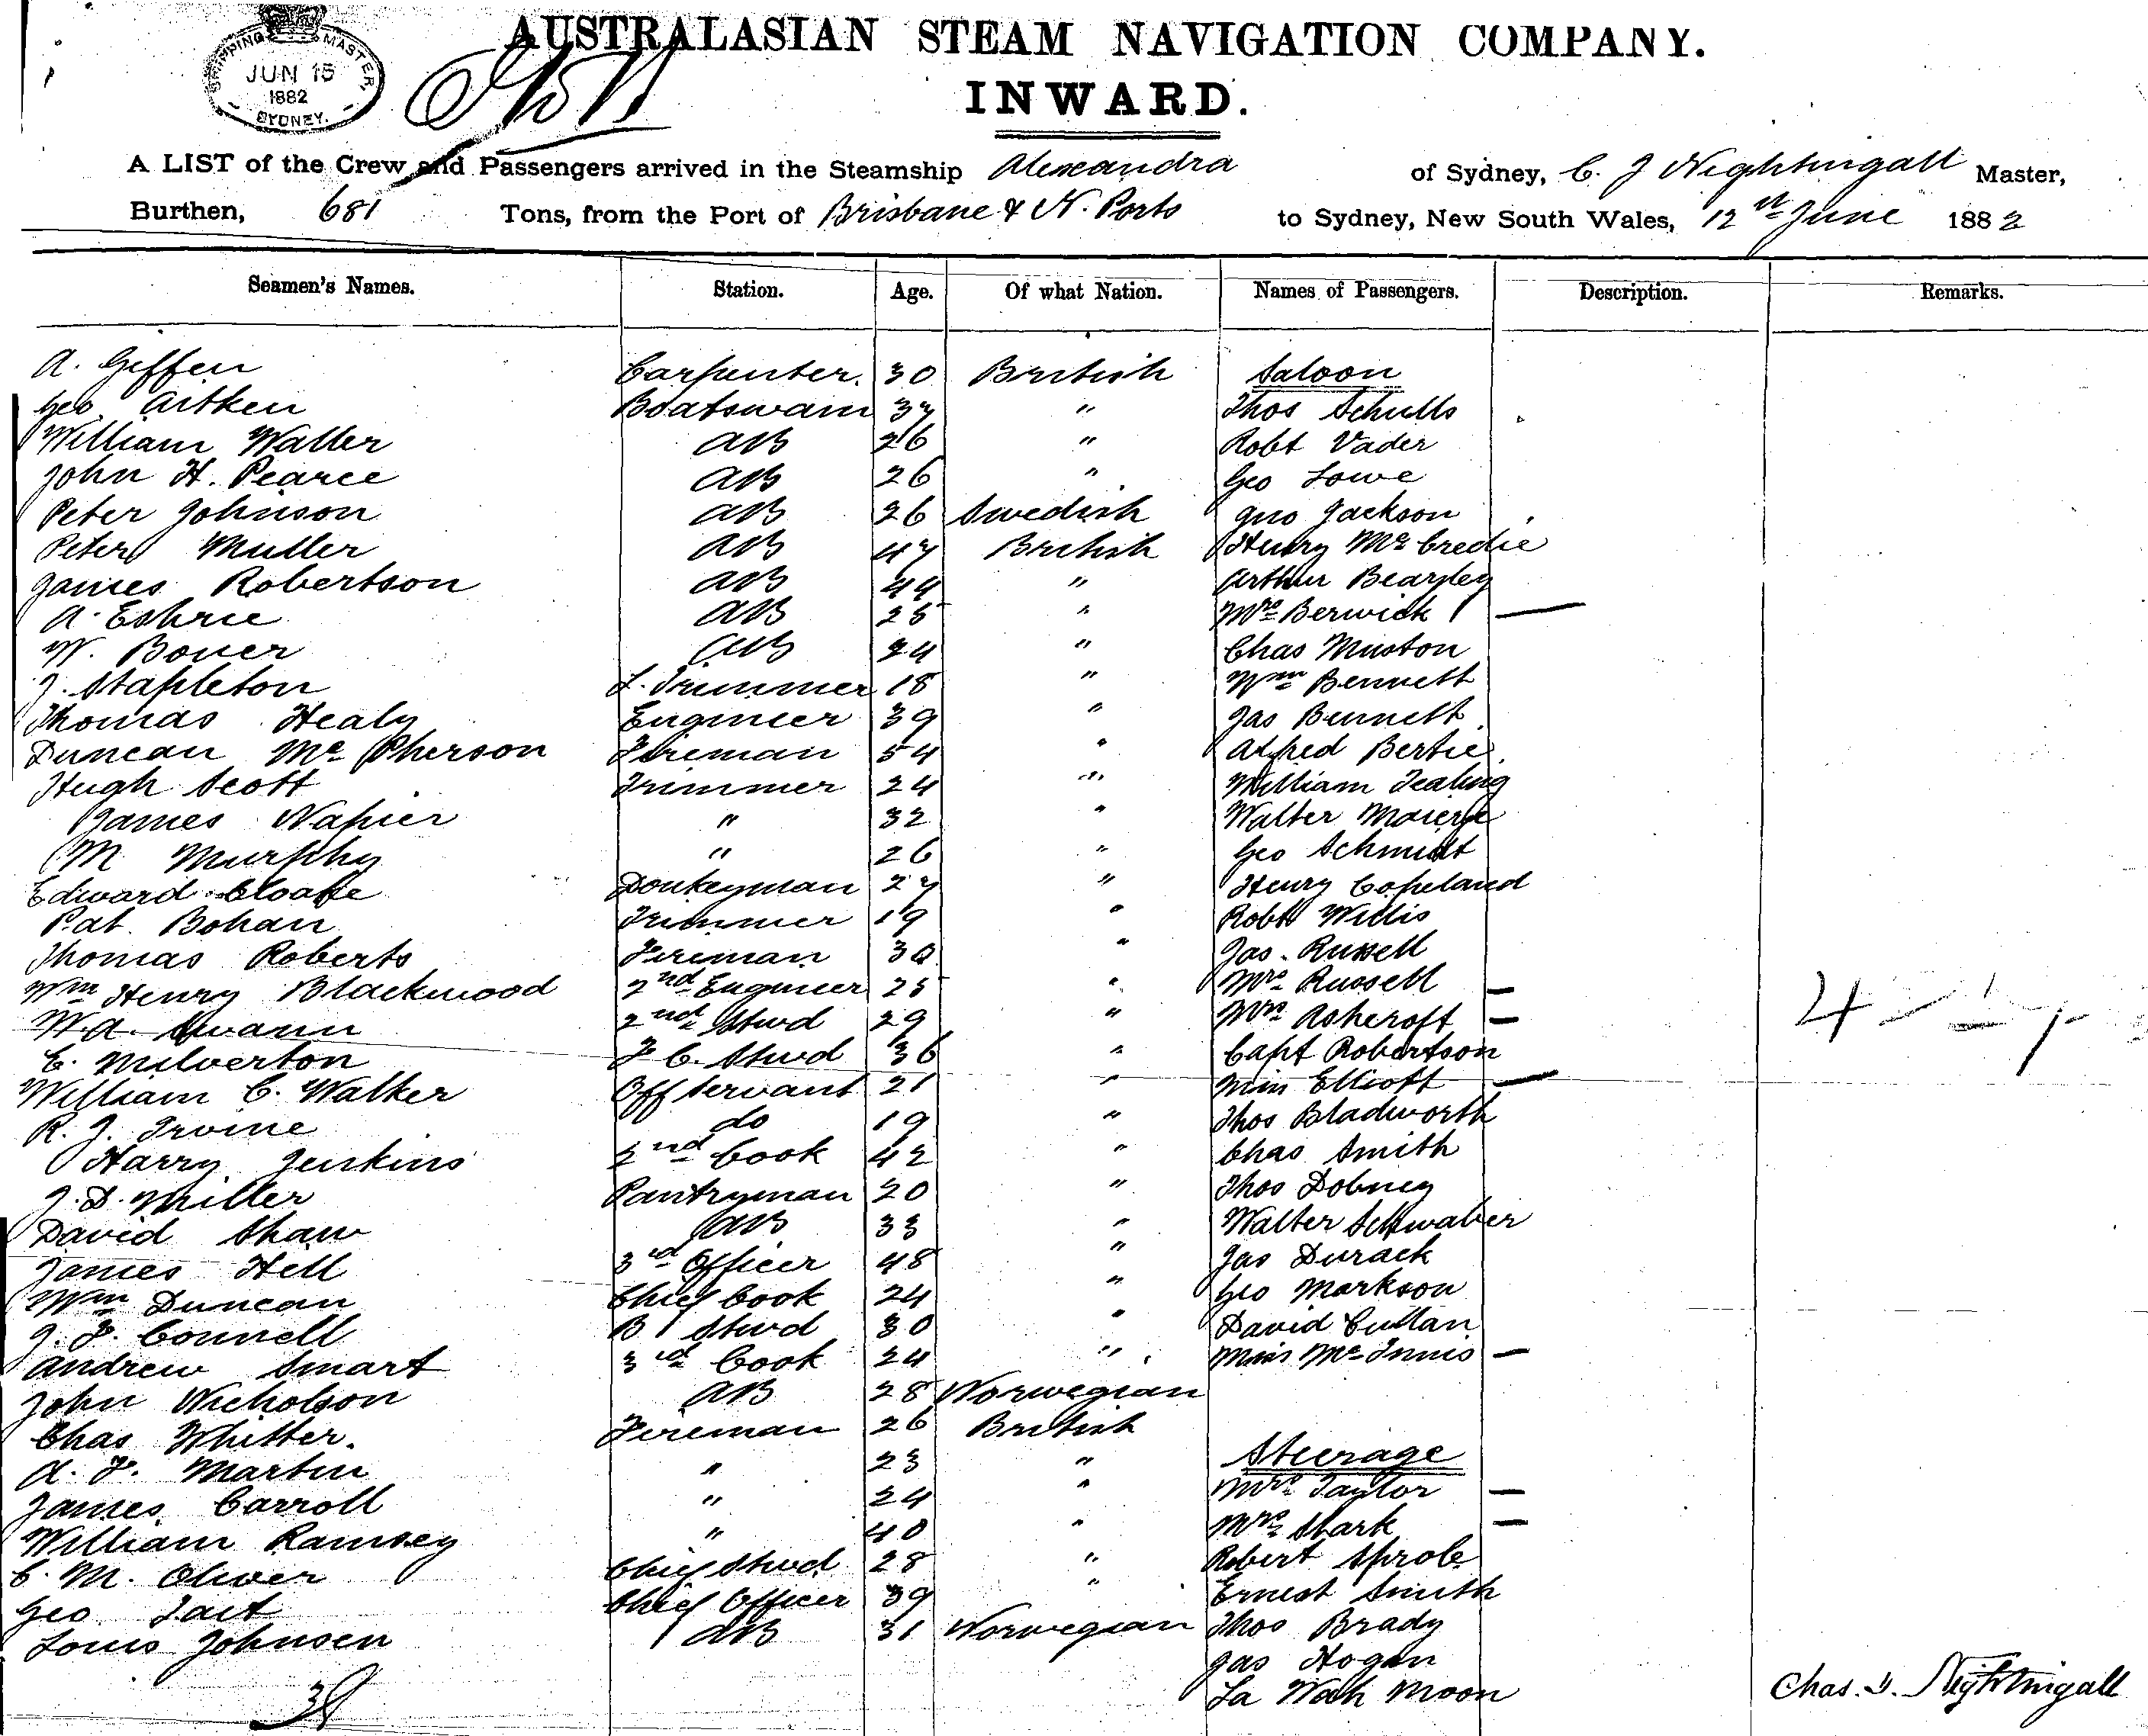 AUSTRALASIAN STEAM NAVIGATION COMPANY.
SHIPPING MASTER,
JUN 15
1882
SYDNEY.
INWARD.
A LIST of the Crew and Passengers arrived in the Steamship Alexandra of Sydney, C. J Nightingall Master,
Burthen, 681 Tons, from the Port of Brisbane & N. Ports to Sydney, New South Wales, 12th June 1882
Seamen's Names. Station. Age. Of what Nation. Names of Passengers. Description. Remarks.
A. Giffen Carpenter. 30 British Saloon
Geo. Aitken Boatswain 37 " Thos Schulls
William Waller AB 26 " Robt Vader
John H. Pearce AB 26 " Geo Lowe
Peter Johnson AB 26 Swedish Jno Jackson
Peter Muller AB 47 British Henry McCredie
James Robertson AB 44 " Arthur Bearsley
A. AB 25 " Mrs Berwick —
W. Boner AB 24 " Chas Muston
J. Stapleton L. Trimmer 18 " Wm Bennett
Thomas Healy Engineer 39 " Jas Bennett
Duncan McPherson Fireman 54 " Alfred Bertie
Hugh Scott Trimmer 24 " William Tealing
James Napier " 32 " Walter
M Murphy " 26 " Geo Schmidt
Edward Cloake Donkeyman 27 " Henry Copeland
Pat. Bohan Trimmer 19 " Robt Willis
Thomas Roberts Fireman 30 " Jas. Russell
Wm Henry Blackwood 2nd Engineer 25 " Mrs Russell —
W. A. Swann 2nd Stwd 29 " Mrs Ashcroft —
C. Milverton F C. Stwd 36 " Capt Robertson
William C. Walker Off Servant 21 " Miss Elliott —
R. J. Irvine do 19 " Thos Bladworth
Harry Jenkins 2nd Cook 42 " Chas Smith
J. D. Miller Pantryman 20 " Thos Dobney
David Shaw AB 33 " Walter Schwaber
James Hill 3rd Officer 48 " Jas Durack
Wm Duncan Chief Cook 24 " Geo Markson
J. F. Connell B Stwd 30 " David Cullan
Andrew Smart 3rd Cook 24 " Miss McInnis —
John Nicholson AB 28 Norwegian
Chas Whitter. Fireman 26 British
A. F. Martin " 23 " Steerage
James Carroll " 24 " Mrs Taylor —
William Ramsey " 40 " Mrs Stark —
C. M. Oliver Chief Stwd 28 " Robert Sprole
Geo Tait Chief Officer 39 " Ernest Smith
Louis Johnsen AB 31 Norwegian Thos Brady
Jas Hogan
La Wah Moon
38
Chas. J. Nightingall